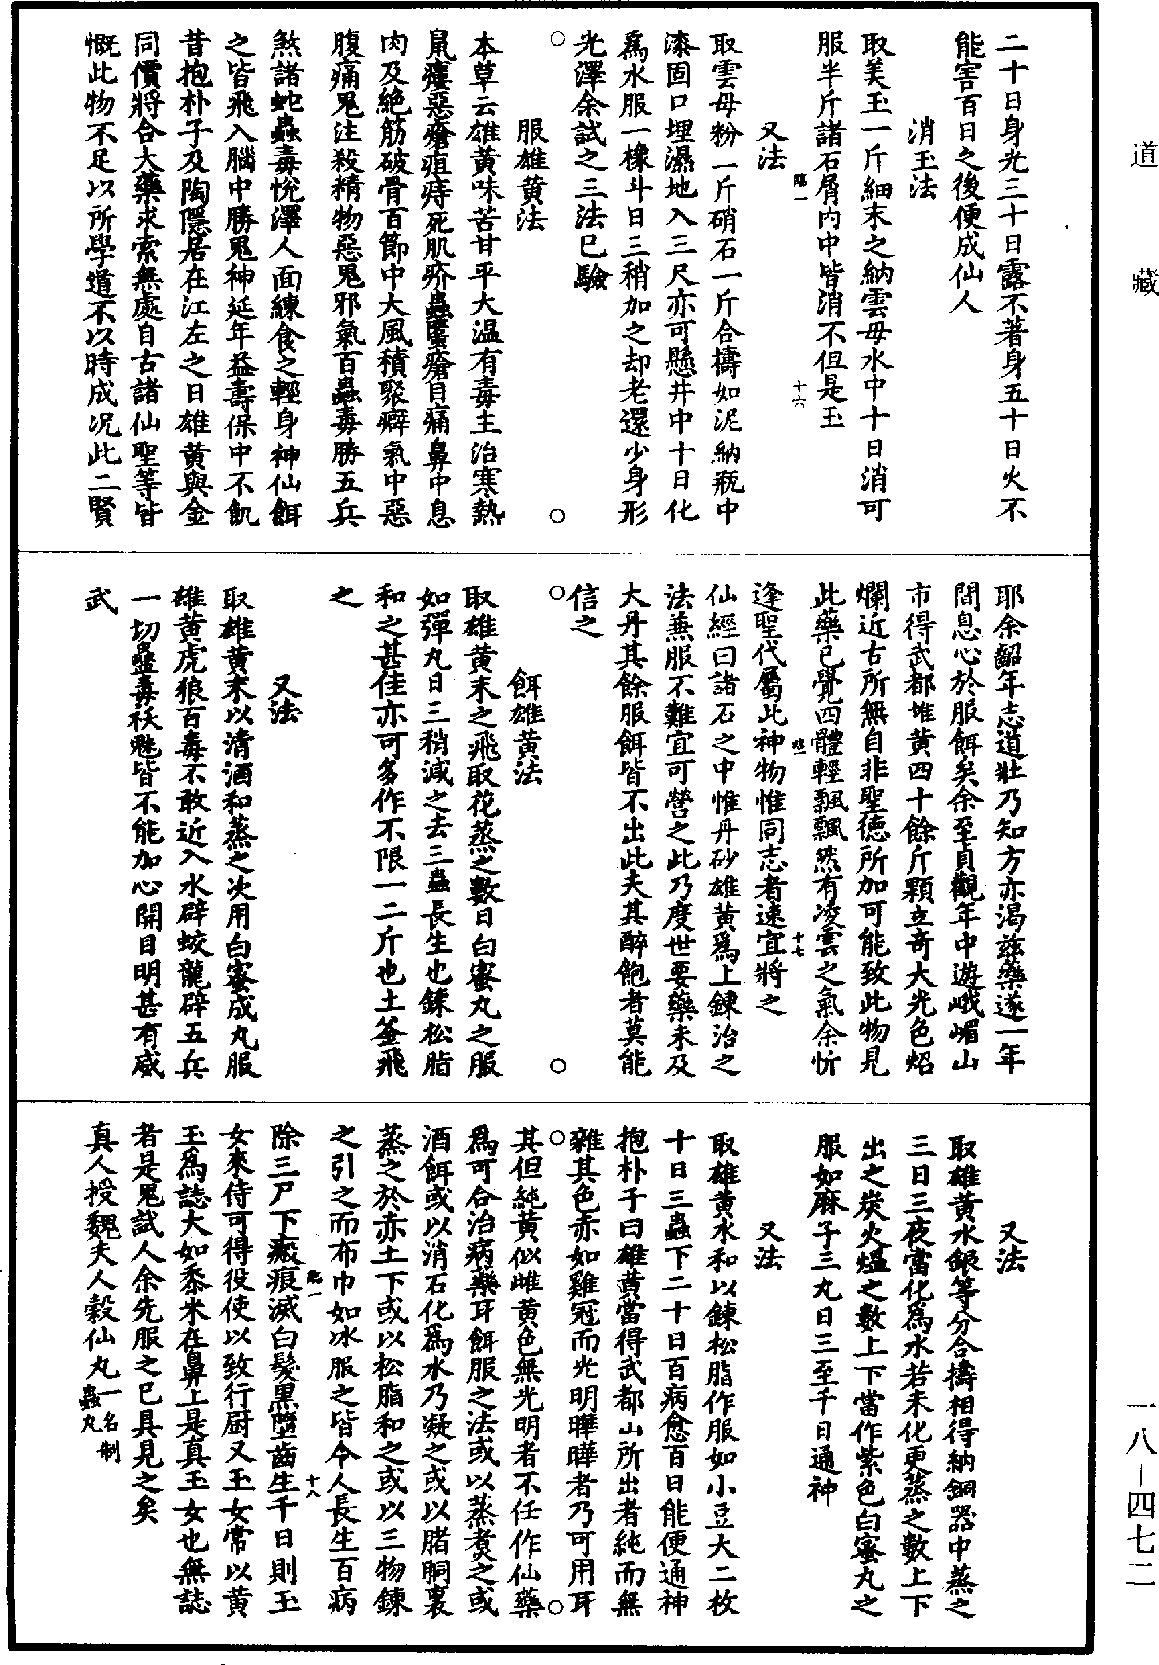 道藏
二十日身光三十日露不著身五十日火不
能害百日之後便成仙人
消玉法
取美玉一斤細末之納雲母水中十日消可
服半斤諸石屑內中皆消不但是玉
臨一
十六
又法
取雲母粉一斤硝石一斤合擣如泥納瓶中
漆固口埋濕地入三尺亦可懸井中十日化
為水服一橡斗日三稍加之却老還少身形
光澤余試之三法已驗
服雄黃法
本草云雄黃味苦甘平大溫有毒主治寒熱
鼠瘻惡瘡疽痔死肌疥蟲䘌瘡目痛鼻中息
肉及絕筋破骨百節中大風積聚癖氣中惡
腹痛鬼注殺精物惡鬼邪氣百蟲毒勝五兵
煞諸蛇蟲毒悅澤人面練食之輕身神仙餌
之皆飛入腦中勝鬼神延年益壽保中不飢
昔抱朴子及陶隱居在江左之日雄黃與金
同價將合大藥求索無處自古諸仙聖等皆
慨此物不足以所學道不以時成况此二賢
耶余齠年志道壯乃知方亦渴茲藥遂一年
間息心於服餌矣余至貞觀年中遊峨嵋山
市得武都雄黃四十餘斤顆立奇大光色炤
爛近古所無自非聖德所加可能致此物見
此藥已覺四體輕飄飄然有凌雲之氣余忻
臨一
十七
逢聖代屬此神物惟同志者速宜將之
仙經曰諸石之中惟丹砂雄黃為上鍊治之
法兼服不難宜可營之此乃度世要藥未及
大丹其餘服餌皆不出此夫其醉飽者莫能
信之
餌雄黃法
取雄黃末之飛取花蒸之數日白蜜丸之服
如彈丸日三稍減之去三蟲長生也鍊松脂
和之甚佳亦可多作不限一二斤也土釜飛
之
又法
取雄黃末以清酒和蒸之次用白蜜成丸服
雄黃虎狼百毒不敢近入水辟蛟龍辟五兵
一切蠱毒祅魅皆不能加心開目明甚有威
武
又法
取雄黃水銀等分合擣相得納銅器中蒸之
三日三夜當化為水若未化更蒸之數上下
出之炭火熅之數上下當作紫色白蜜丸之
服如麻子三丸日三至千日通神
又法
取雄黃水和以鍊松脂作服如小豆大二枚
十日三蟲下二十日百病愈百日能便通神
抱朴子曰雄黃當得武都山所出者純而無
雜其色赤如雞冠而光明曄曄者乃可用耳
其但純黃似雌黃色無光明者不任作仙藥
為可合治病藥耳餌服之法或以蒸煑之或
酒餌或以消石化為水乃凝之或以豬胴裹
蒸之於赤土下或以松脂和之或以三物鍊
之引之而布巾如冰服之皆令人長生百病
臨一
十八
除三尸下瘢痕滅白髮黑墮齒生千日則玉
女來侍可得役使以致行厨又玉女常以黃
玉為誌大如黍米在鼻上是真玉女也無誌
者是鬼試人余先服之已具見之矣
真人授魏夫人穀仙丸一名制蟲丸
一八—四七二